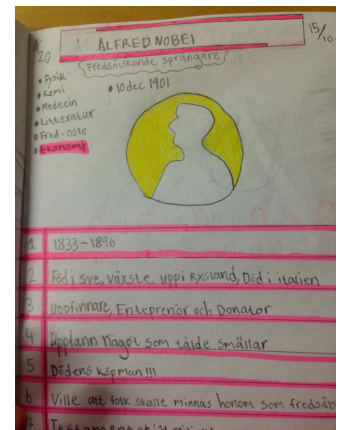 ALFRED NOBEL
15/10
20
Fredsälskande sprängare
Fysik
Kemi
Medecin
Litteratur
Fred-oslo
Ekonomi
10 dec 1901
1 1833-1896
2 Föd i sve, växste uppi Ryssland, Död i italien
3 Uppfinnare, Enteprenör och Donator
4 Uppfann något som tålde smällar
5 Dödens köpman!!!
6 Ville att folk skulle minnas honom som fredsäls
7 Testamentet